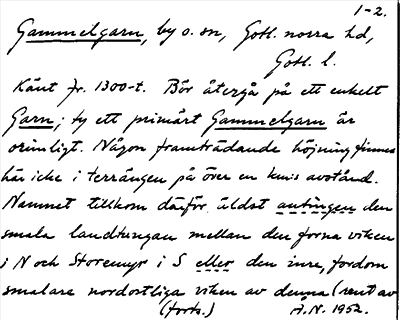 1-2.
Gammelgarn, by o. sn, Gotl. norra hd,
Gotl. l.
Känt fr. 1300-t. Bör återgå på ett enkelt
Garn; ty ett primärt Gammelgarn är
orimligt. Någon framträdande höjning finnes
här icke i terrängen på över en km:s avstånd.
Namnet tillkom därför äldst antingen den
smala landtungan mellan den forna viken
i N och Storemyr i S eller den inre, fordom
smalare nordostliga viken av denna (rent av
(forts.) A.N. 1952.